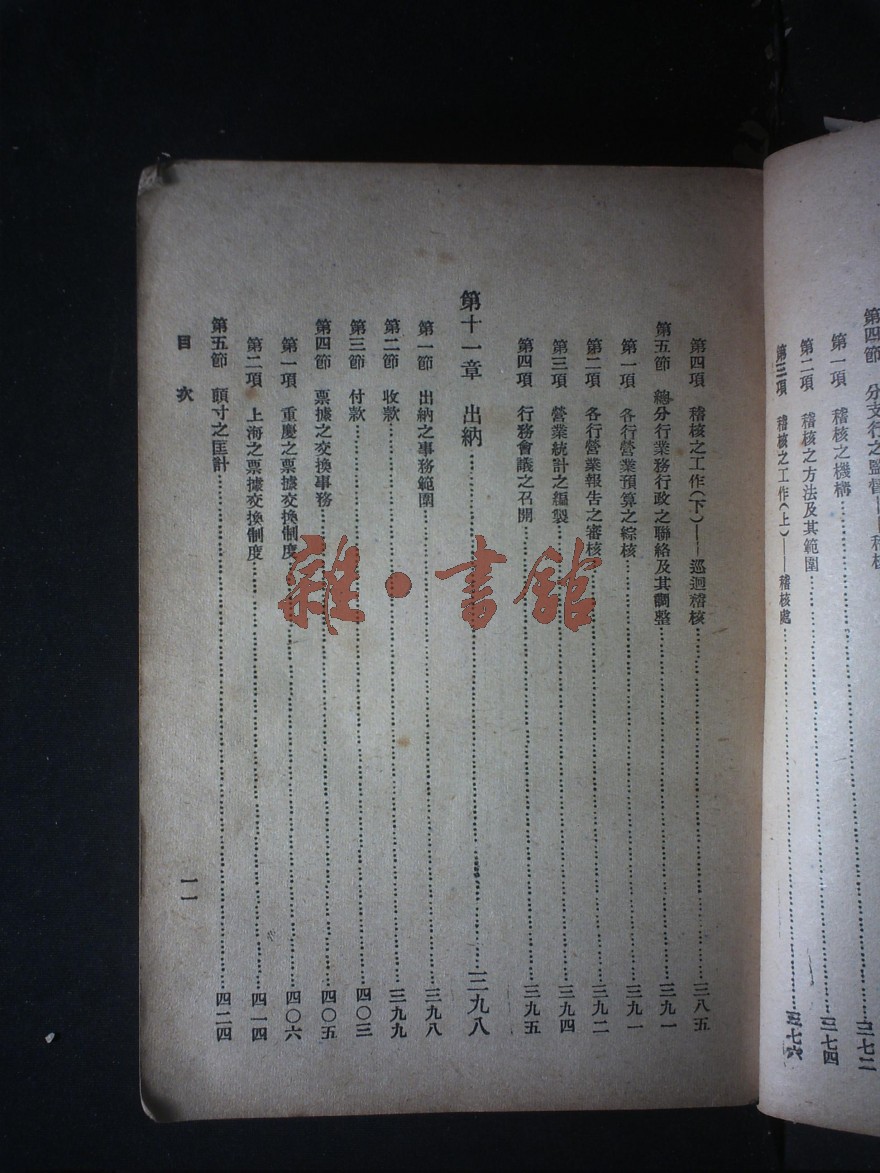 第四節 分支行之監督——稽核 三七二
第一項 稽核之機構 三七四
第二項 稽核之方法及其範圍
第三項 稽核之工作(上)——稽核處 三七六
第四項 稽核之工作(下)——巡迴稽核 三八五
第五節 總分行業務行政之聯絡及其調整 三九一
第一項 各行營業預算之綜核 三九一
第二項 各行營業報告之審核 三九二
第三項 營業統計之編製 三九四
第四項 行務會議之召開 三九五
第十一章 出納 三九八
第一節 出納之事務範圍 三九八
第二節 收款 三九九
第三節 付款 四〇三
第四節 票據之交換事務 四〇五
第一項 重慶之票據交換制度 四〇六
第二項 上海之票據交換制度 四一四
第五節 頭寸之匡計 四二四
目次 一一
雜·書館